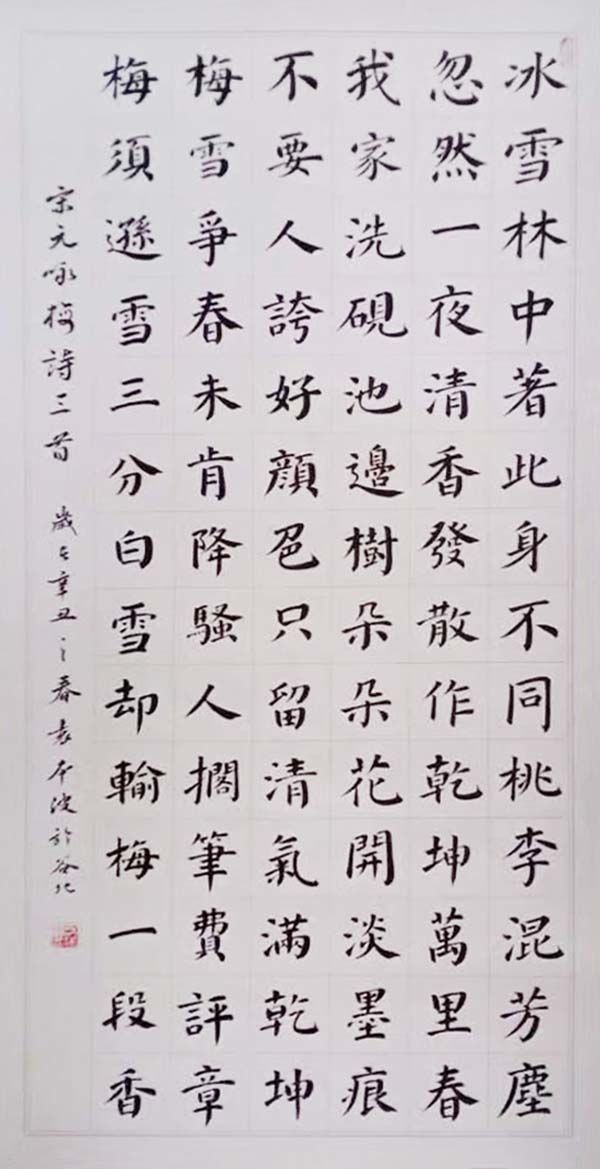 冰雪林中著此身不同桃李混芳塵
忽然一夜清香發散作乾坤萬里春
我家洗硯池邊樹朵朵花開淡墨痕
不要人誇好顏色只留清氣滿乾坤
梅雪爭春未肯降騷人擱筆費評章
梅須遜雪三分白雪却輸梅一段香
宋元咏梅詩三首 歲在辛丑之春袁本波於谷北